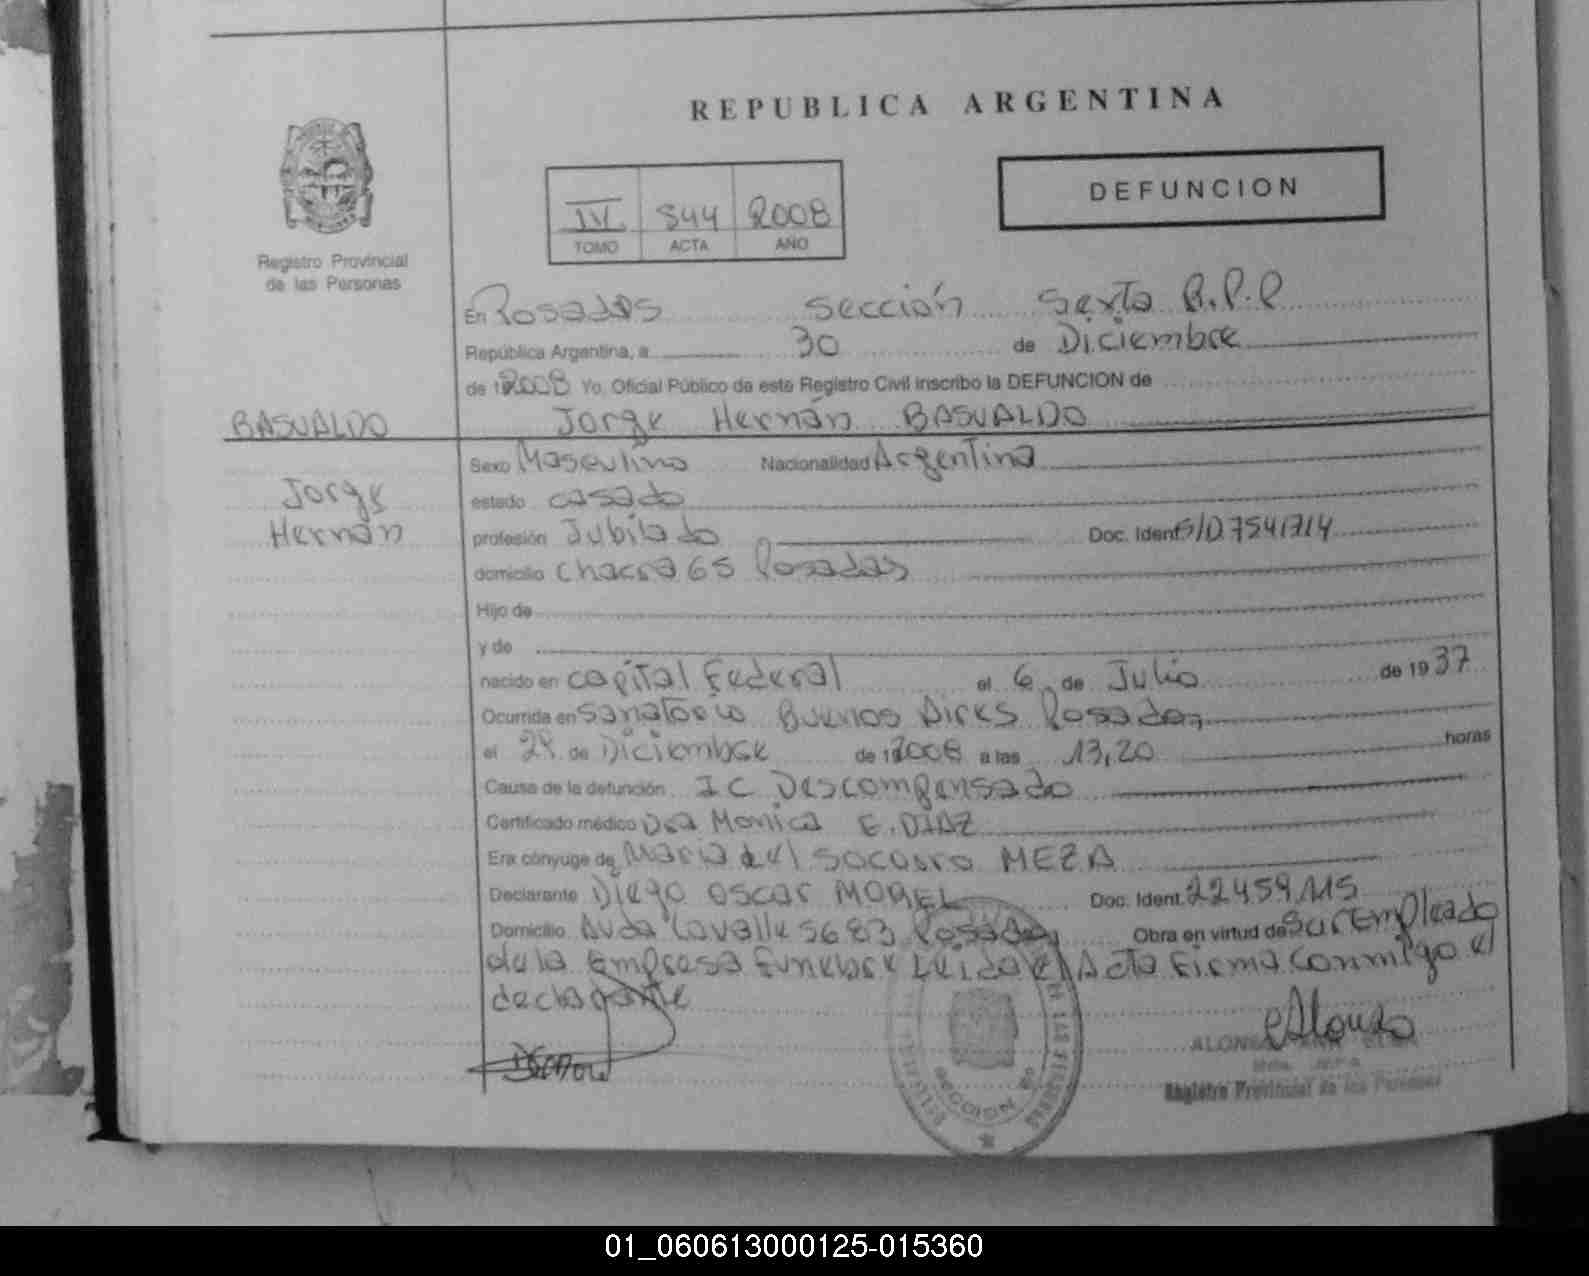 REPUBLICA ARGENTINA
DEFUNCION
IV 844 2008
TOMO ACTA AÑO
Registro Provincial
de las Personas
En Posadas sección sexta R.P.P
República Argentina, a 30 de Diciembre
de 2008 Yo, Oficial Público de este Registro Civil inscribo la DEFUNCION de
BASUALDO
Jorge Hernán BASUALDO
Jorge
Hernán
Sexo Masculino Nacionalidad Argentina
estado casado
profesión Jubilado Doc. Ident. S/D 7541714
domicilio chacra 65 Posadas
Hijo de
y de
nacido en capital Federal el 6 de Julio de 1937
Ocurrida en sanatorio Buenos Aires Posadas
el 29 de Diciembre de 2008 a las 13,20 horas
Causa de la defunción IC Descompensado
Certificado médico Dra Monica E. DIAZ
Era cónyuge de Maria del Socorro MEZA
Declarante Diego Oscar MOREL Doc. Ident. 22459115
Domicilio Avda Lavalle 5683 Posadas Obra en virtud de Ser Empleado
de la Empresa Funebre Leida el Acta Firma Conmigo el
declarante
Alonso
ALONSO
Registro Provincial de las Personas
SECCION
01_060613000125-015360